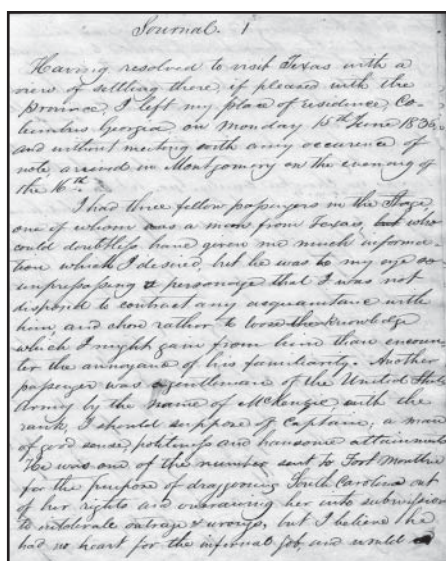 Journal. 1
Having resolved to visit Texas with a
view of settling there, if pleased with the
Province, I left my place of residence, Co-
lumbus Georgia on Monday 15th June 1835
and without meeting with any occurence of
note, arrived in Montgomery on the evening of
the 16th.
I had three fellow passengers in the Stage
one of whom was a man from Texas, but who
could doubtless have given me much informa
tion which I desired, but he was to my eye so
unprepossing a personage that I was not
disposed to contract any acquaintance with
him, and chose rather to loose the knowledge
which I might gain from him than encoun-
ter the annoyance of his familiarity. Another
passenger was a gentleman of the United States
Army by the name of McKenzie, with the
rank, I should suppose of Captain; a man
of good sense, politeness and hansome attainments
He was one of the number sent to Fort Moultrie
for the purpose of dragooning South Carolina out
of her rights and overawing her into submission
to intolerable outrage & wrongs, but I believe he
had no heart for the infernal job, and would